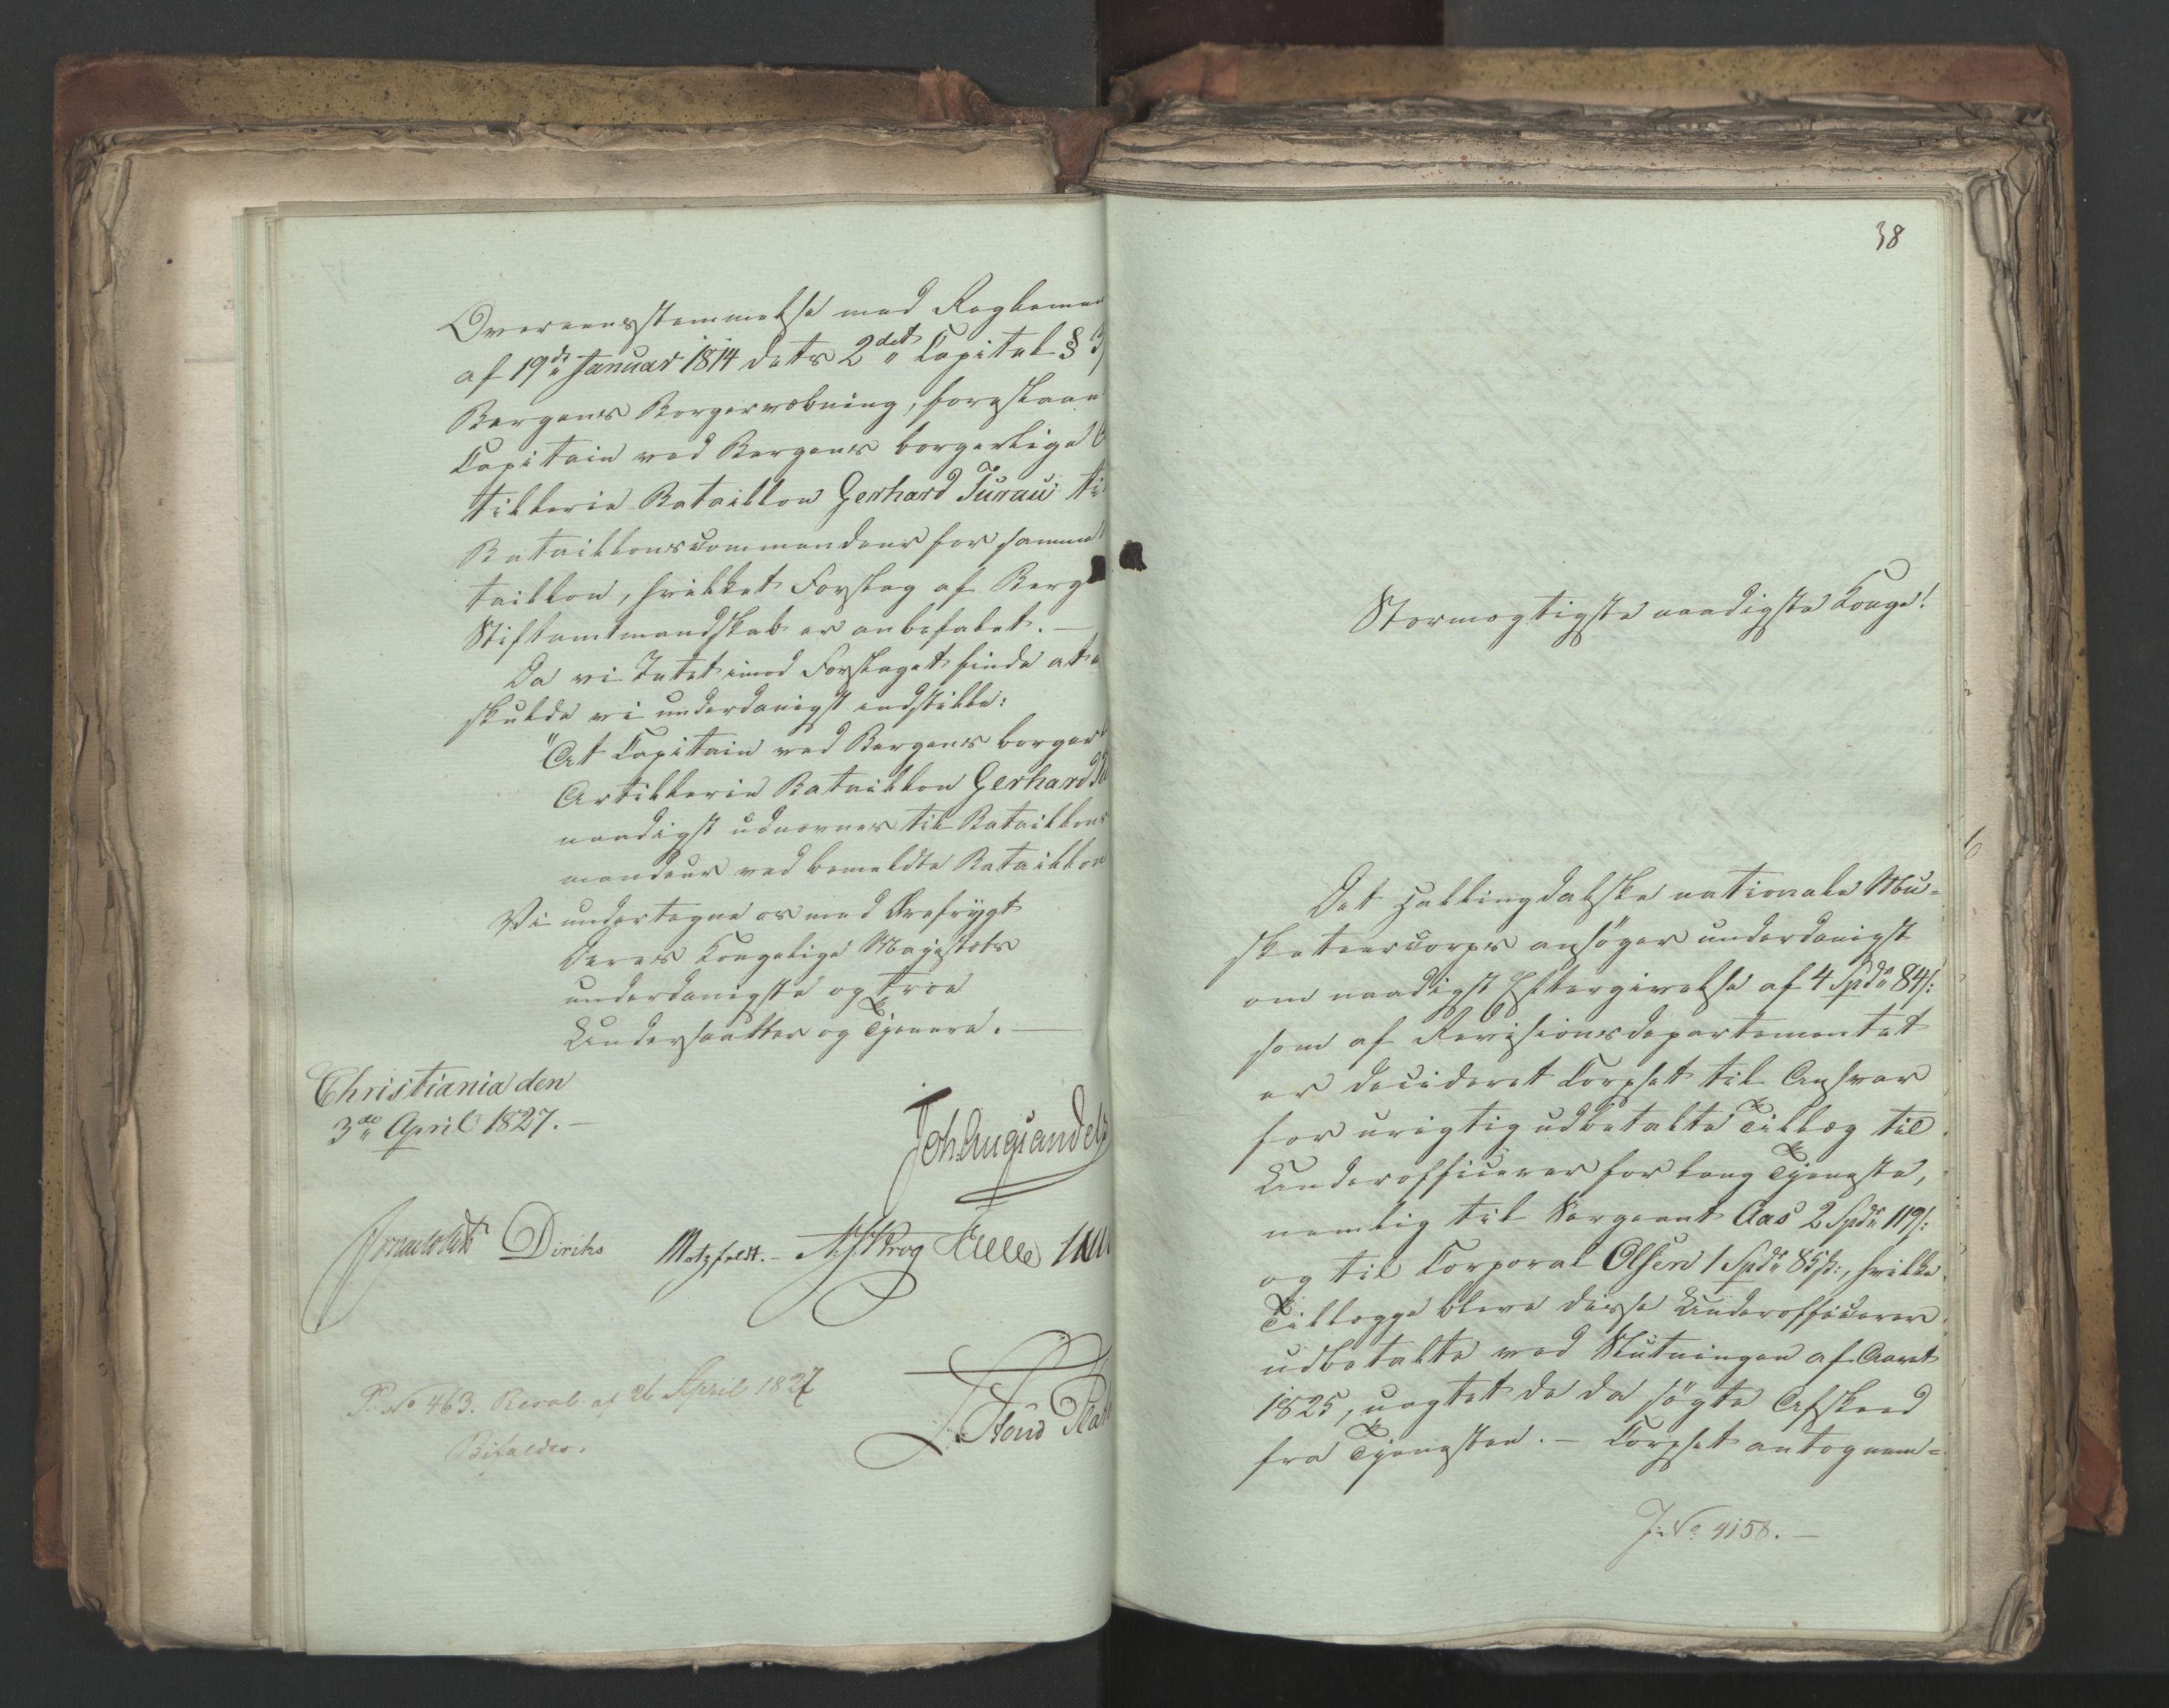 Overeensstemmelse med Reglemen
af 19de Januar 1814 dets 2det Capitel § 3
Bergens Borgervæbning, foreslaaet
Capitain ved Bergens borgerlige
tillerie Bataillon Gerhard Turau ti
Bataillonscommandeur for samme
taillon, hvilket Forslag af Berg
Stiftamtmandskab er anbefalet. —
Da vi Intet imod Forslaget finde at
skulde vi underdanigst indstille:
"At Capitain ved Bergens borger
Artillerie Bataillon Gerhard
naadigst udnævnes til Bataillons
mandeur ved bemeldte Bataillon
Vi undertegne os med Ærefrygt
Deres Kongelige Majestæts
underdanigste og troe
Undersaatter og Tjenere. —
Christiania den
3de April 1827. —
Joh. Aug. Sandels
Sommerhielm Diriks Motzfeldt. — A. J. Krog Collett
P. No 463. Resol. af 26 April 1827
Bifaldes.
38
Stormægtigste naadigste Konge!
Det Hallingdalske nationale Mu-
sketeercorps ansøger underdanigst
om naadigst Eftergivelse af 4 Spdr 84ß:
som af Revisionsdepartementet
er decideret Corpset til Ansvar
for urigtig udbetalte Tillæg til
Underofficerer for lang Tjeneste,
nemlig til Sergeant Aas 2 Spdr 119ß:
og til Corporal Olsen 1 Spdr 85ß:, hvilke
Tillægge bleve disse Underofficerer
udbetalte ved Slutningen af Aaret
1825, uagtet de da søgte Afskeed
fra Tjenesten. — Corpset antog nem-
J: No 4158. —